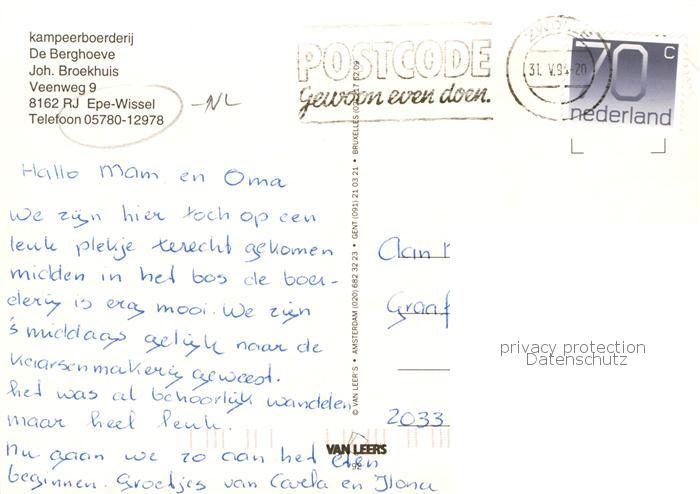 kampeerboerderij
De Berghoeve
Joh. Broekhuis
Veenweg 9
8162 RJ Epe-Wissel
Telefoon 05780-12978
-NL
POSTCODE
Gewoon even doen.
31. V.94-20
70 c
nederland
Hallo Mam en Oma
We zijn hier toch op een
leuk plekje terecht gekomen
midden in het bos de boer-
derij is erg mooi. We zijn
's middags gelijk naar de
kaarsenmakerij geweest.
het was al behoorlijk wandelen
maar heel leuk.
Nu gaan we zo aan het eten
beginnen. Groetjes van Carla en Ilona
© VAN LEER'S • AMSTERDAM (020) 682 32 23 • GENT (091) 21 03 21 • BRUXELLES
VAN LEERS
92
Aan
Graaf
2033
privacy protection
Datenschutz